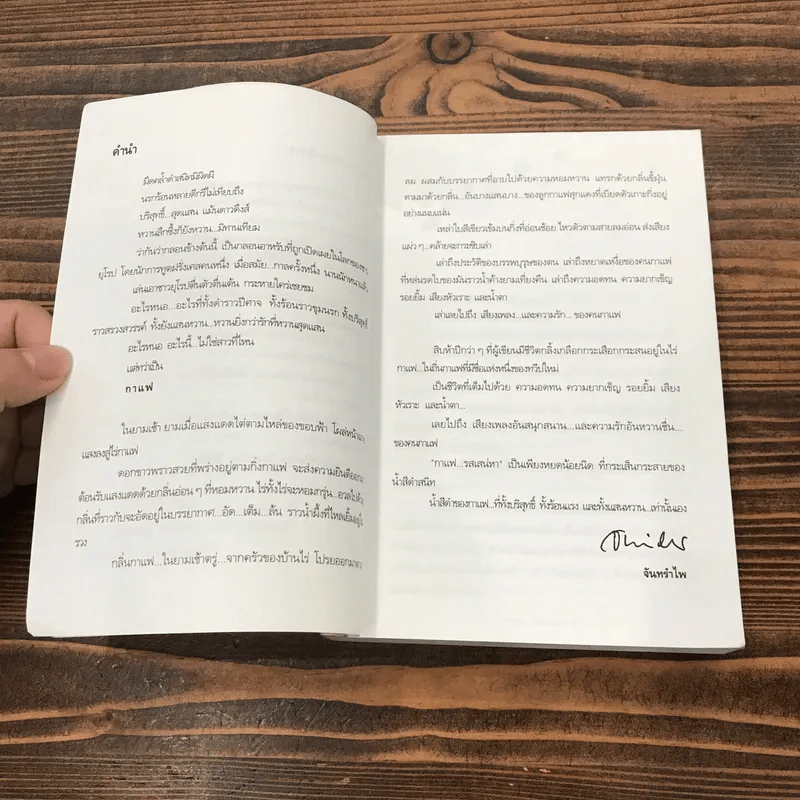 คำนำ
มืดคล้ำดำสนิทมิผิดผี
นรกร้อนหลายดีกรีไม่เทียบถึง
บริสุทธิ์...สุดแสน แม้นดาวดึงส์
หวานลึกซึ้งก็ยังหวาน...มิทานเทียม
ว่ากันว่ากลอนข้างต้นนี้ เป็นกลอนอาหรับที่ถูกเปิดเผยในโลกของชาว
ยุโรป โดยนักการทูตฝรั่งเศสคนหนึ่ง เมื่อสมัย...กาลครั้งหนึ่ง นานนักหนาแล้ว
เล่นเอาชาวยุโรปตื่นตัวตื่นเต้น กระหายใคร่เชยชม
อะไรหนอ...อะไรที่ทั้งดำราวปีศาจ ทั้งร้อนราวขุมนรก ทั้งบริสุทธิ์
ราวสรวงสวรรค์ ทั้งยังแสนหวาน...หวานยิ่งกว่ารักที่หวานสุดแสน
อะไรหนอ อะไรนี้...ไม่ใช่สาวที่ไหน
แต่ทว่าเป็น
กาแฟ
ในยามเช้า ยามเมื่อแสงแดดไต่ตามไหล่ของขอบฟ้า โผล่หน้ามา
แสงลงสู่ไร่กาแฟ
ดอกขาวพราวสวยที่พร่างอยู่ตามกิ่งกาแฟ จะส่งความยินดีออกมา
ต้อนรับแสงแดดด้วยกลิ่นอ่อน ๆ ที่หอมหวาน ไร่ทั้งไร่จะหอมกรุ่น...อวลไปด้วย
กลิ่นที่ราวกับจะอัดอยู่ในบรรยากาศ...อัด...เต็ม...ล้น ราวน้ำผึ้งที่ไหลเยิ้มอยู่ใน
รวง
กลิ่นกาแฟ...ในยามเช้าตรู่...จากครัวของบ้านไร่ โปรยออกมาตาม
ลม ผสมกับบรรยากาศที่อาบไปด้วยความหอมหวาน แทรกด้วยกลิ่นชื้นฝุ่น
ตามมาด้วยกลิ่น...อันบางแสนบาง...ของลูกกาแฟสุกแดงที่เบียดตัวเกาะกิ่งอยู่
อย่างแนบแน่น
เหล่าใบสีเขียวเข้มบนกิ่งที่อ่อนช้อย ไหวตัวตามสายลมอ่อน ส่งเสียง
แผ่ว ๆ...คล้ายจะกระซิบเล่า
เล่าถึงประวัติของบรรพบุรุษของตน เล่าถึงหยาดเหงื่อของคนกาแฟ
ที่หล่นรดใบของมันราวน้ำค้างยามเที่ยงคืน เล่าถึงความอดทน ความยากเข็ญ
รอยยิ้ม เสียงหัวเราะ และน้ำตา
เล่าเลยไปถึง เสียงเพลง...และความรัก... ของคนกาแฟ
สิบห้าปีกว่า ๆ ที่ผู้เขียนมีชีวิตกลิ้งเกลือกกระเสือกกระสนอยู่ในไร่
กาแฟ...ในถิ่นกาแฟที่มีชื่อแห่งหนึ่งของทวีปใหม่
เป็นชีวิตที่เต็มไปด้วย ความอดทน ความยากเข็ญ รอยยิ้ม เสียง
หัวเราะ และน้ำตา...
เลยไปถึง เสียงเพลงอันสนุกสนาน...และความรักอันหวานชื่น...
ของคนกาแฟ
"กาแฟ...รสเสน่หา" เป็นเพียงหยดน้อยนิด ที่กระเส็นกระสายของ
น้ำสีดำสนิท
น้ำสีดำของกาแฟ...ที่ทั้งบริสุทธิ์ ทั้งร้อนแรง และทั้งแสนหวาน...เท่านั้นเอง
จันทรำไพ